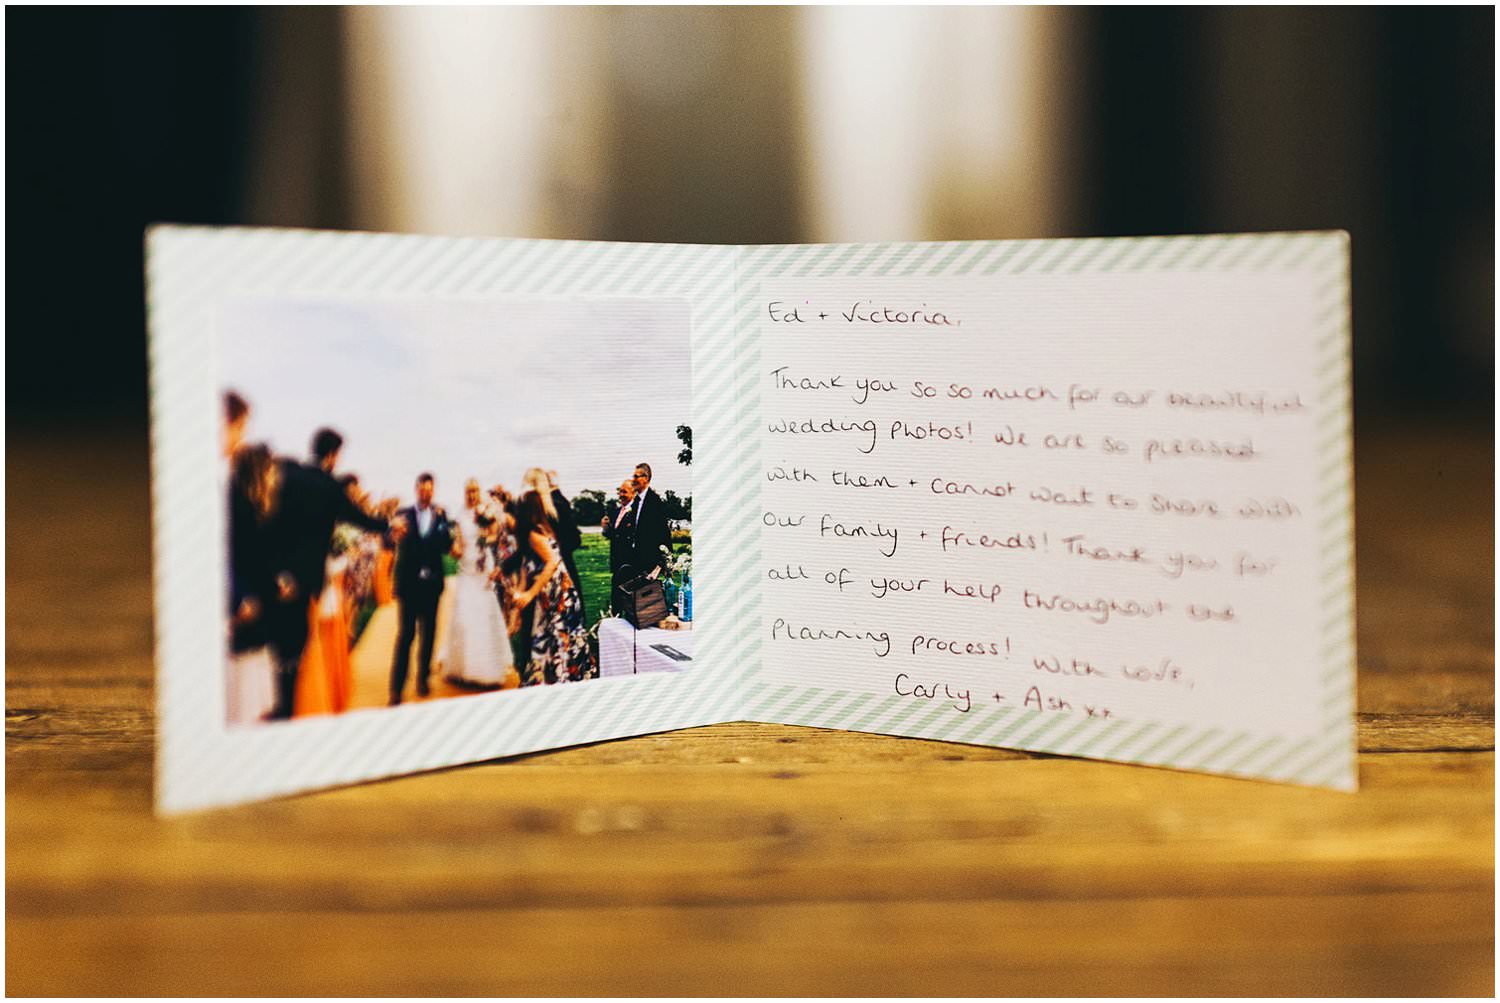 Ed + Victoria,
Thank you so so much for our beautiful
wedding photos! We are so pleased
with them + cannot wait to share with
our family + friends! Thank you for
all of your help throughout the
planning process! With love,
Carly + Ash xx